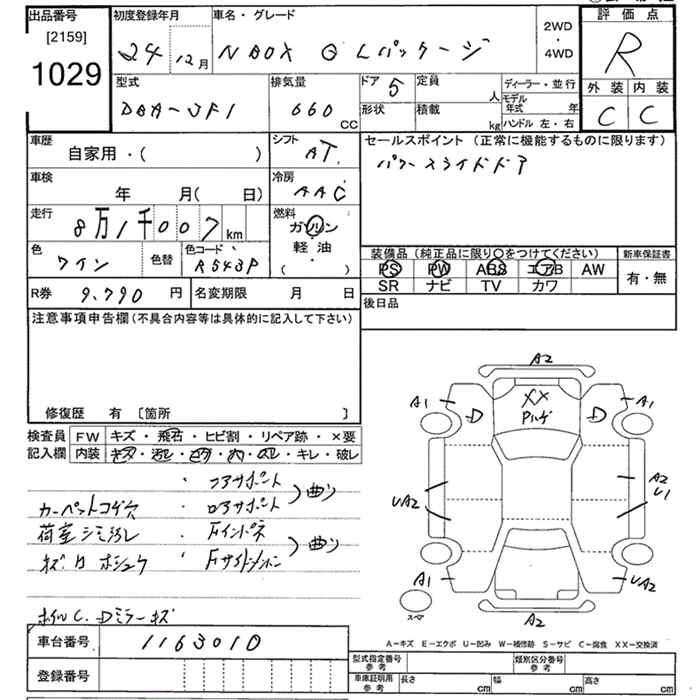 出品番号
[2159]
1029
初度登録年月
24年12月
車名・グレード
N BOX G Lパッケージ
2WD
・
4WD
評価点
R
外装 内装
C C
型式
DBA-JF1
排気量
660
CC
ドア 5
形状
定員
人
積載
kg
ディーラー・並行
モデル年式 年
ハンドル 左・右
車歴
自家用・( )
シフト
AT
車検
年 月( 日)
冷房
AAC
走行
8万1千007km
燃料
ガソリン
軽油
( ・ )
色
ワイン
色替
色コード
R543P
R券 9,790 円
名変期限 月 日
セールスポイント(正常に機能するものに限ります)
パワースライドドア
装備品(純正品に限り○をつけてください)
PS PW ABS エアB AW
SR ナビ TV カワ
新車保証書
有・無
後日品
注意事項申告欄(不具合内容等は具体的に記入して下さい)
修復歴 有 [箇所 ]
検査員
記入欄
FW キズ・飛石・ヒビ割・リペア跡・×要
内装 キズ・汚レ・
・キレ・破レ
・コアサポート
カーペットコゲ穴 ・ロアサポート 曲り
荷室シミ汚レ ・Fインパネ
・Fサイドメンバー 曲り
ホイルC. Dミラーキズ
A2
XX
Pハゲ
A1 D D A1
UA2
A2
U1
A1 UA2
スペア
A2
車台番号 1163010
登録番号
A-キズ E-エクボ U-凹み W-補修跡 S-サビ C-腐食 XX-交換済
型式指定番号
参考
類別区分番号
参考
車庫証明用
参考
長さ cm 幅 cm 高さ cm